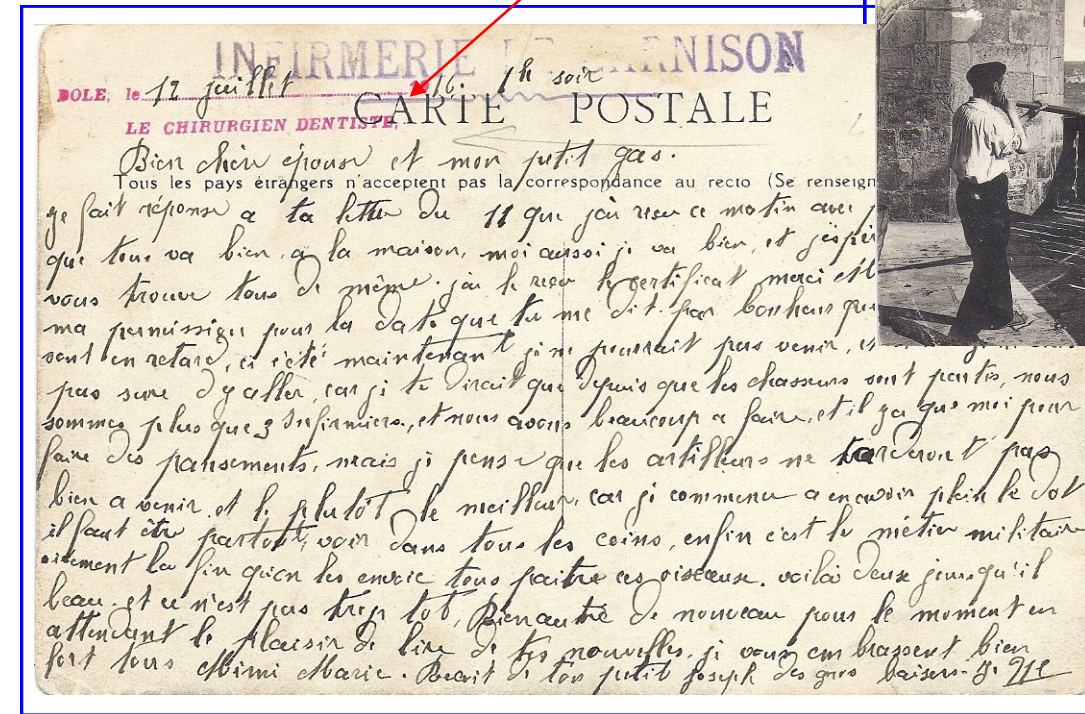 INFIRMERIE DE GARNISON
DOLE, le 12 juillet 1916. 1h soir
CARTE POSTALE
LE CHIRURGIEN DENTISTE,
Bien chère épouse et mon petit gas.
Tous les pays étrangers n'acceptent pas la correspondance au recto (Se renseign
je fait réponse a ta lettre du 11 que jai reçu ce matin avec
que tous va bien a la maison, moi aussi je va bien, et j'espèr
vous trouve tous de même. jai le reçu le certificat merci et
ma permission pour la date que tu me dit. par bonheur que
sont en retard, ci c'été maintenant je ne pourrait pas venir, et
pas sure d'y aller, car je te dirait que depuis que les chasseurs sont partis, nous
sommes plus que 3 Infirmiers, et nous avons beaucoup a faire, et il y a que moi pour
faire des pansements, mais je pense que les artilleurs ne tarderont pas
bien a venir, et le plutôt le meilleur, car je commence a en avoir plein le dot
il faut être partout, voir dans tous les coins, enfin c'est le métier militaire
la fin qu'on les envoie tous paitre ces oiseaux. voilà deux jours qu'il
beau. et ce n'est pas trop tôt, Rien autre de nouveau pour le moment en
attendant le plaisir de lire de tes nouvelles. je vous embrassent bien
fort tous Mimi Marie. Reçoit de ton petit Joseph des gros baisers. J.